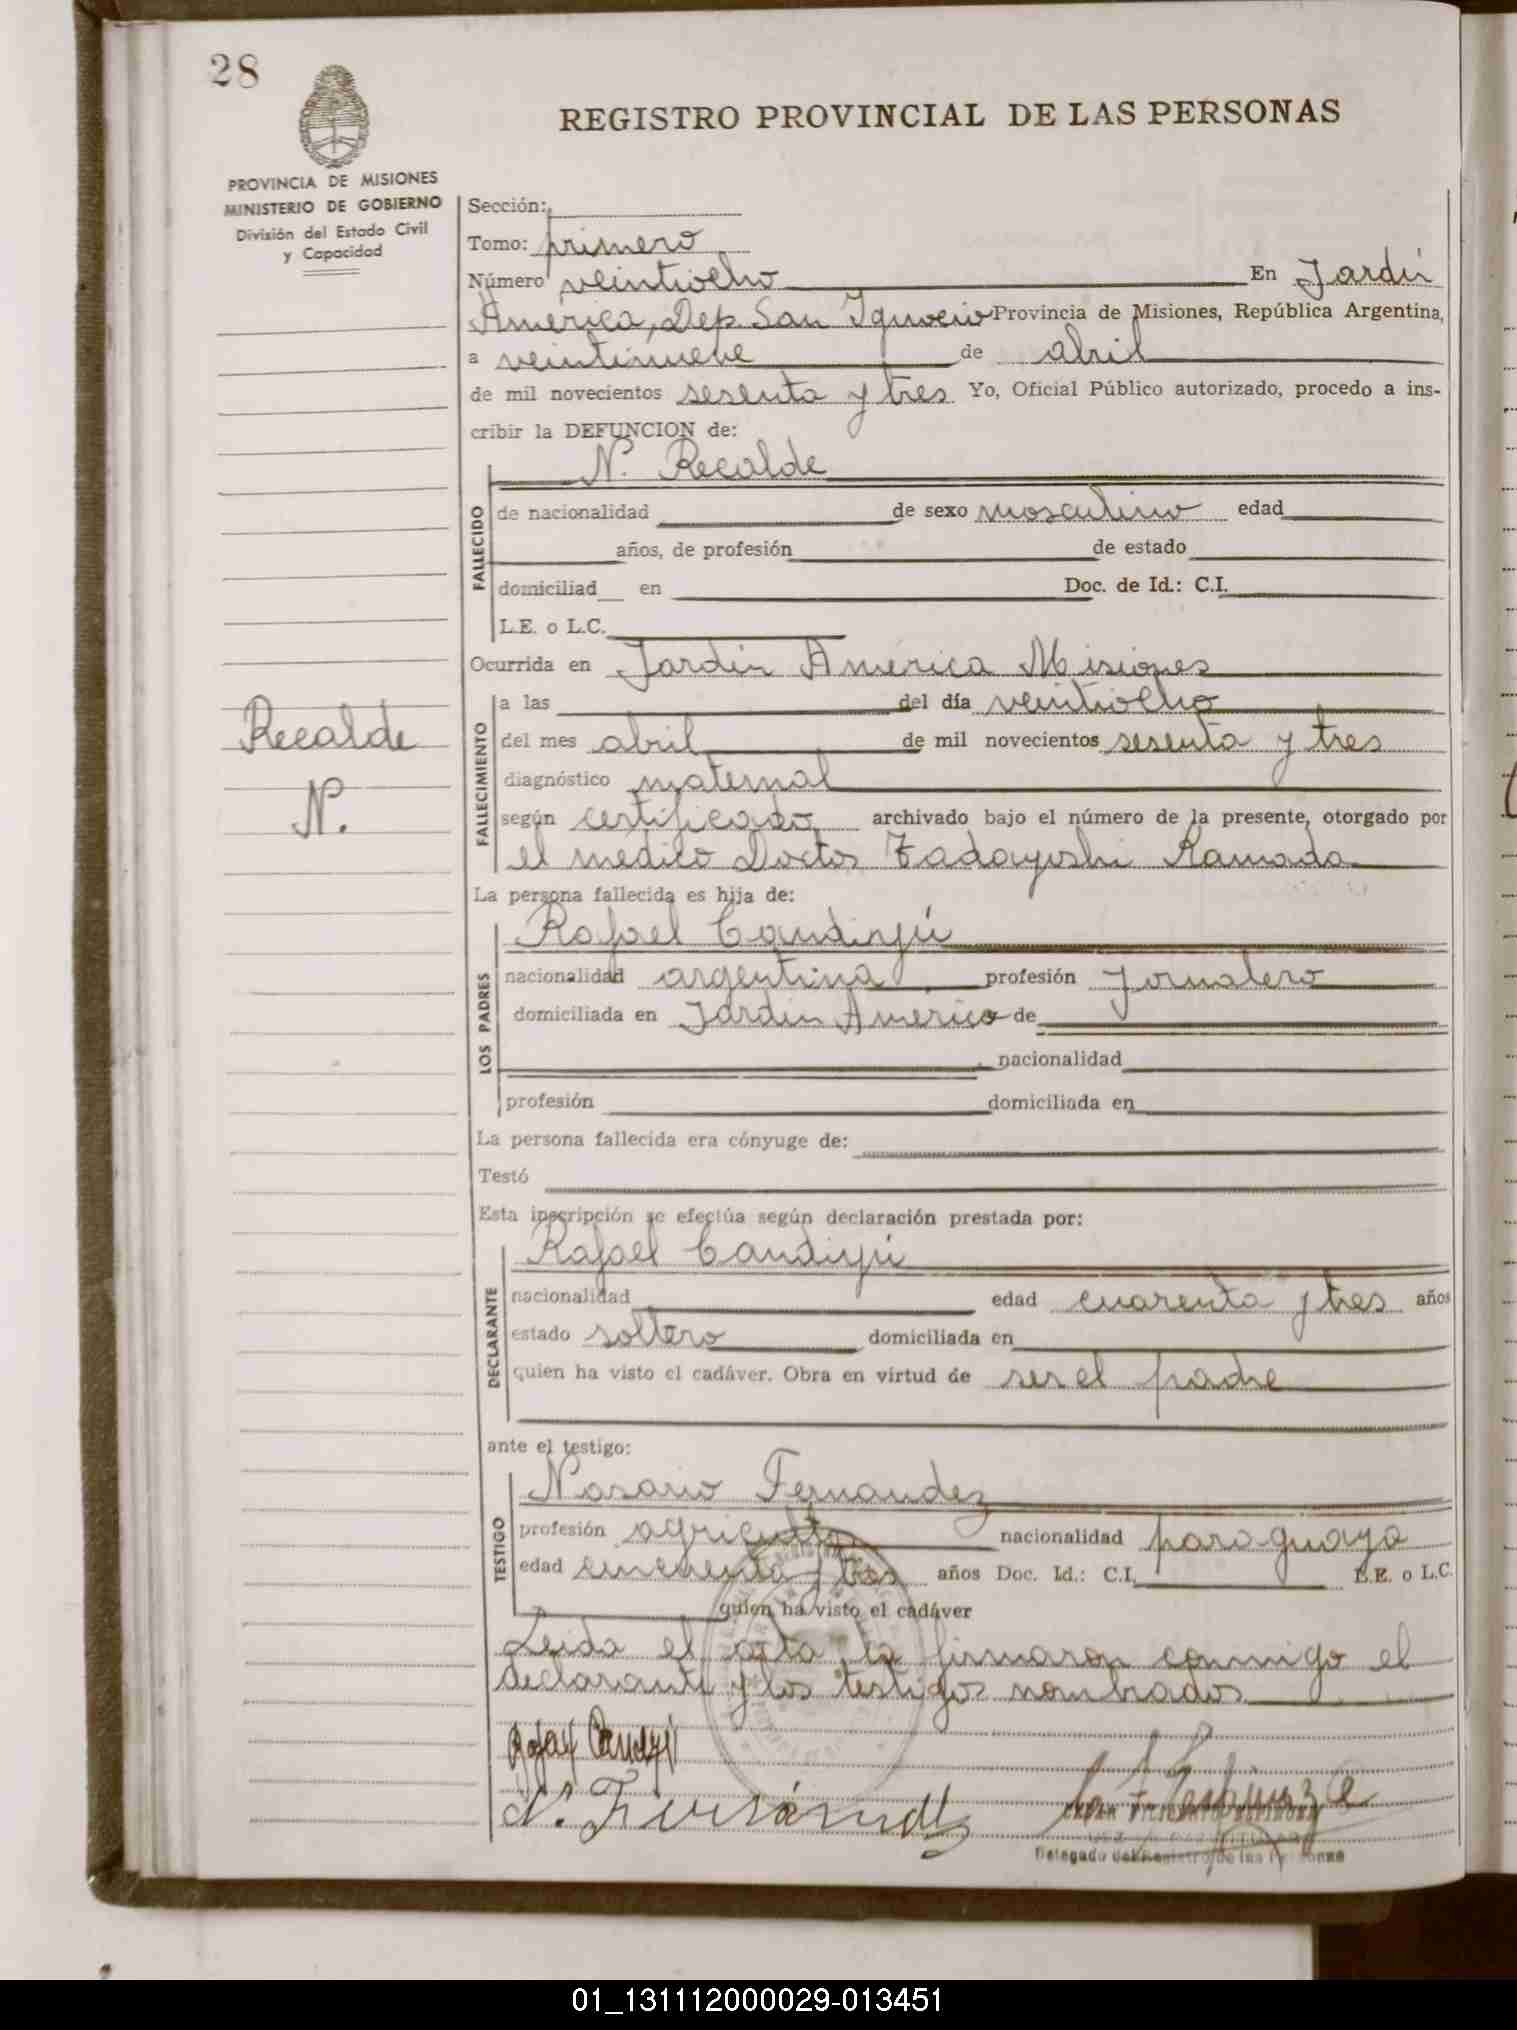 28
REGISTRO PROVINCIAL DE LAS PERSONAS
PROVINCIA DE MISIONES
MINISTERIO DE GOBIERNO
División del Estado Civil
y Capacidad
Sección:
Tomo: primero
Número veintiocho En Jardín
America, Dep. San Ignacio Provincia de Misiones, República Argentina,
a veintinueve de abril
de mil novecientos sesenta y tres Yo, Oficial Público autorizado, procedo a ins-
cribir la DEFUNCION de:
N. Recalde
FALLECIDO
de nacionalidad de sexo masculino edad
años, de profesión de estado
domiciliad en Doc. de Id.: C.I.
L.E. o L.C.
Ocurrida en Jardín América Misiones
Recalde
N.
FALLECIMIENTO
a las del día veintiocho
del mes abril de mil novecientos sesenta y tres
diagnóstico maternal
según certificado archivado bajo el número de la presente, otorgado por
el medico Doctor Tadayoshi Kamada
La persona fallecida es hija de:
LOS PADRES
Rafael Candirjú
nacionalidad argentina profesión Jornalero
domiciliada en Jardin América de
nacionalidad
profesión domiciliada en
La persona fallecida era cónyuge de:
Testó
Esta inscripción se efectúa según declaración prestada por:
DECLARANTE
Rafael
nacionalidad edad cuarenta y tres años
estado soltero domiciliada en
quien ha visto el cadáver. Obra en virtud de ser el padre
ante el testigo:
TESTIGO
Nasario Fernandez
profesión nacionalidad paraguaya
edad cincuenta y tres años Doc. Id.: C.I. L.E. o L.C.
quien ha visto el cadáver
Leida el acta la firmaron conmigo el
declarante y los testigos nombrados
N. Fernández
Delegado del Registro de las Personas
01_131112000029-013451